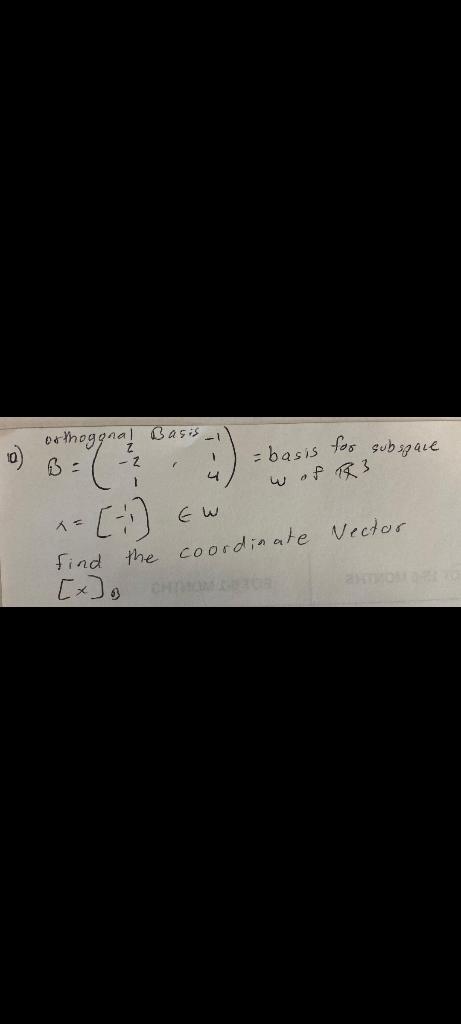 orthogonal Basis
10) B = ( 2 -2 1 , -1 1 4 ) = basis for subspace
w of ℝ3
x = [ ] ∈ W
Find the coordinate Vector
[x]B